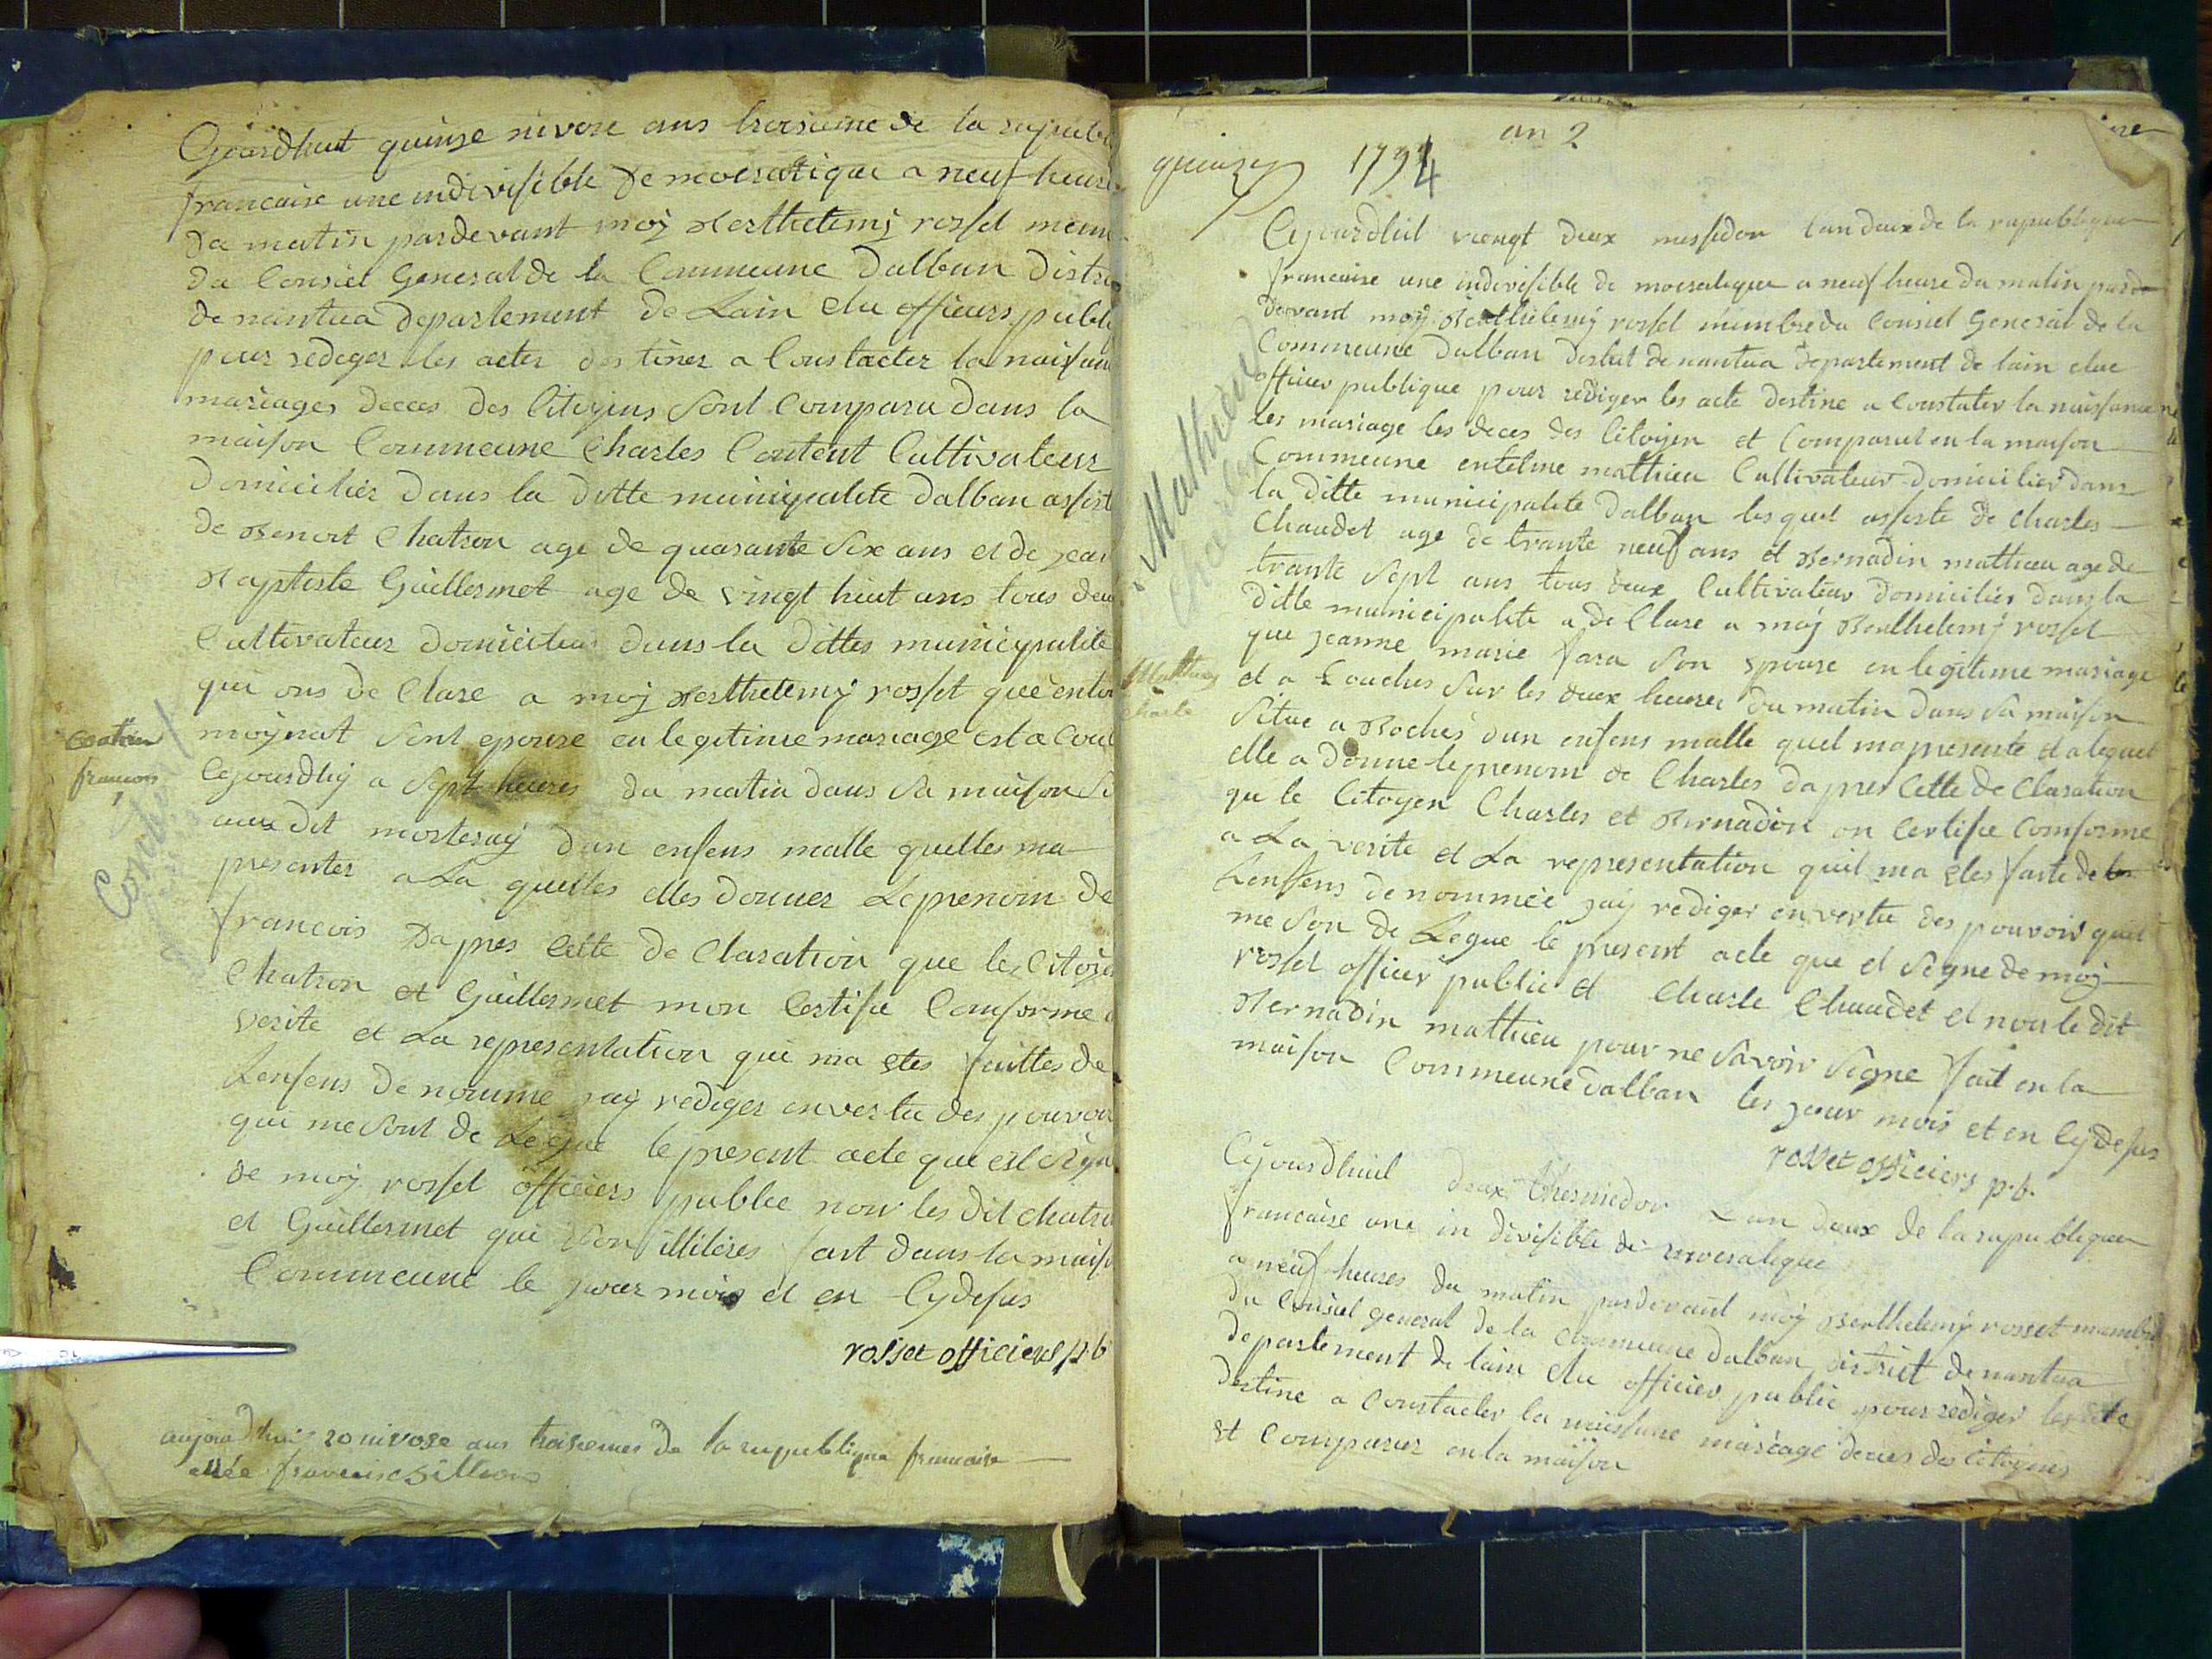 Cejourdhuit quinze nivose ans troisieme de la republi
francaise une indivisible democratique a neuf heure
da matin pardevant moy Berthelemy rosset mem
du Consiel General de la Commeune Dalban Distri
de nantua departement de Lain elu officiers publi
pour rediger les actes destinez a Constacter la naissan
mariages deces des Citoyins Sont Comparu dans la
maison Commeune Charles Content Cultivateur
Domicilier dans la ditte municipalite dalban assist
de Benoit Chatron age de quarante Six ans et de jean
Baptiste Guillermet age de vingt huit ans tous deu
Cultivateur domicilier dans la dittes municipalite
qui ons de Clare a moy Berthelemy rosset que
moynat Sont epouse en legitime mariage est a Cou
Cejourdhy a Sept heures du matin dans Sa maison Si
aux dit morteray dun enfens malle quelles ma
presenter a La quelles elles donner Le prenom de
francois Dapres Cette de Claration que les Citoye
Chatron et Guillermet mon Certifie Conforme a
verite et La representation qui ma etes faittes de
Lenfens denomme jay rediger en vertu des pouvoir
qui me sont de Legue le present acte que est Signe
de moy rosset officiers publice non les dit chatro
et Guillermet qui Son illiteres fait dans la maiso
Commeune le jour mois et en Cydesus
rosset officiers p.b
Contin
francois
1
aujourdhuis 20 nivose ans troisiemes de la republique francaise
née francois
an 2
1794
Cejourdhui viengt deux messidor lan deux de la republique
francaise une indivisible democratique a neuf heure du matin pard
devant moy Berthelemy rosset mimbre du Consiel General de la
Commeune Dalban distict de nantua departement de lain elue
officier publique pour rediger les acte destine a Constater la naissance
les mariage les deces des Citoyen et Comparut en la maison
Commeune entelme mathieu Cultivateur domicilier dans
la ditte municipalite dalban lesquel assiste de Charles
Chaudet age de trante neuf ans et Bernadin mathieu age de
trante Sept ans tous deux Cultivateur domicilier dans la
ditte municipalite a de Clare a moy Berthelemy rosset
que jeanne marie fara Son epouse en legitime mariage
et a Couches Sur les deux heures du matin dans Sa maison
Situe a Roches dun enfens malle quel ma presente et a lequel
elle a donne le prenom de Charles dapres Cette de Claration
que le Citoyen Charles et Bernadin on Certifie Conforme
a La verite et La representation quil ma etes faite de
Lenfens denommee jay rediger en vertu des pouvoir quil
me Son de Legue le present acte que et Signe de moy
rosset officier public et Charle Chaudet et non le dit
Bernadin mathieu pour ne Savoir Signe fait en la
maison Commeune dalban les jour mois et en Cydesus
rosset officiers p.b.
Mathieu
Charles
Mathieu
Charle
Cejourdhuit deux thermidor Lan deux de la republique
francaise une in divisible democratique
a neuf heures du matin pardevant moy Berthelemy rosset membre
du Consiel general de la Commeune dalban district de nantua
departement de lain elu officier public pour rediger les acte
destine a Constacter la naissance mariage deces des Citoyens
et Comparu en la maison